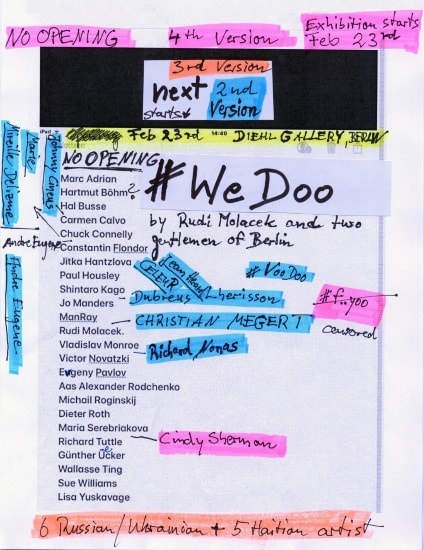 NO OPENING 4th Version Exhibition starts
Feb 23rd
3rd Version
next 2nd
starts Version
iPad
Feb 23rd 14:40 DIEHL GALLERY, BERLIN
NO OPENING
#WeDoo
by Rudi Molacek and two
gentlemen of Berlin
Marc Adrian
Hartmut Böhm ?
Hal Busse
Carmen Calvo
Chuck Connelly
Constantin Flondor
Jitka Hantzlova
Paul Housley
Shintaro Kago
Jo Manders
ManRay
Rudi Molacek
Vladislav Monroe
Victor Novatzki
Evgeny Pavlov
Aas Alexander Rodchenko
Michail Roginskij
Dieter Roth
Maria Serebriakova
Richard Tuttle
Günther Ücker
Wallasse Ting
Sue Williams
Lisa Yuskavage
Mireille Delizme
Marie
Johnny Cineus
André Eugene
André Eugene
Jean Herard
CELEUR
# VooDoo
Dubreus Lherisson
CHRISTIAN MEGERT
Richard Nonas
#f..yoo
censored
Cindy Sherman
6 Russian/Ukrainian + 5 Haitian artist